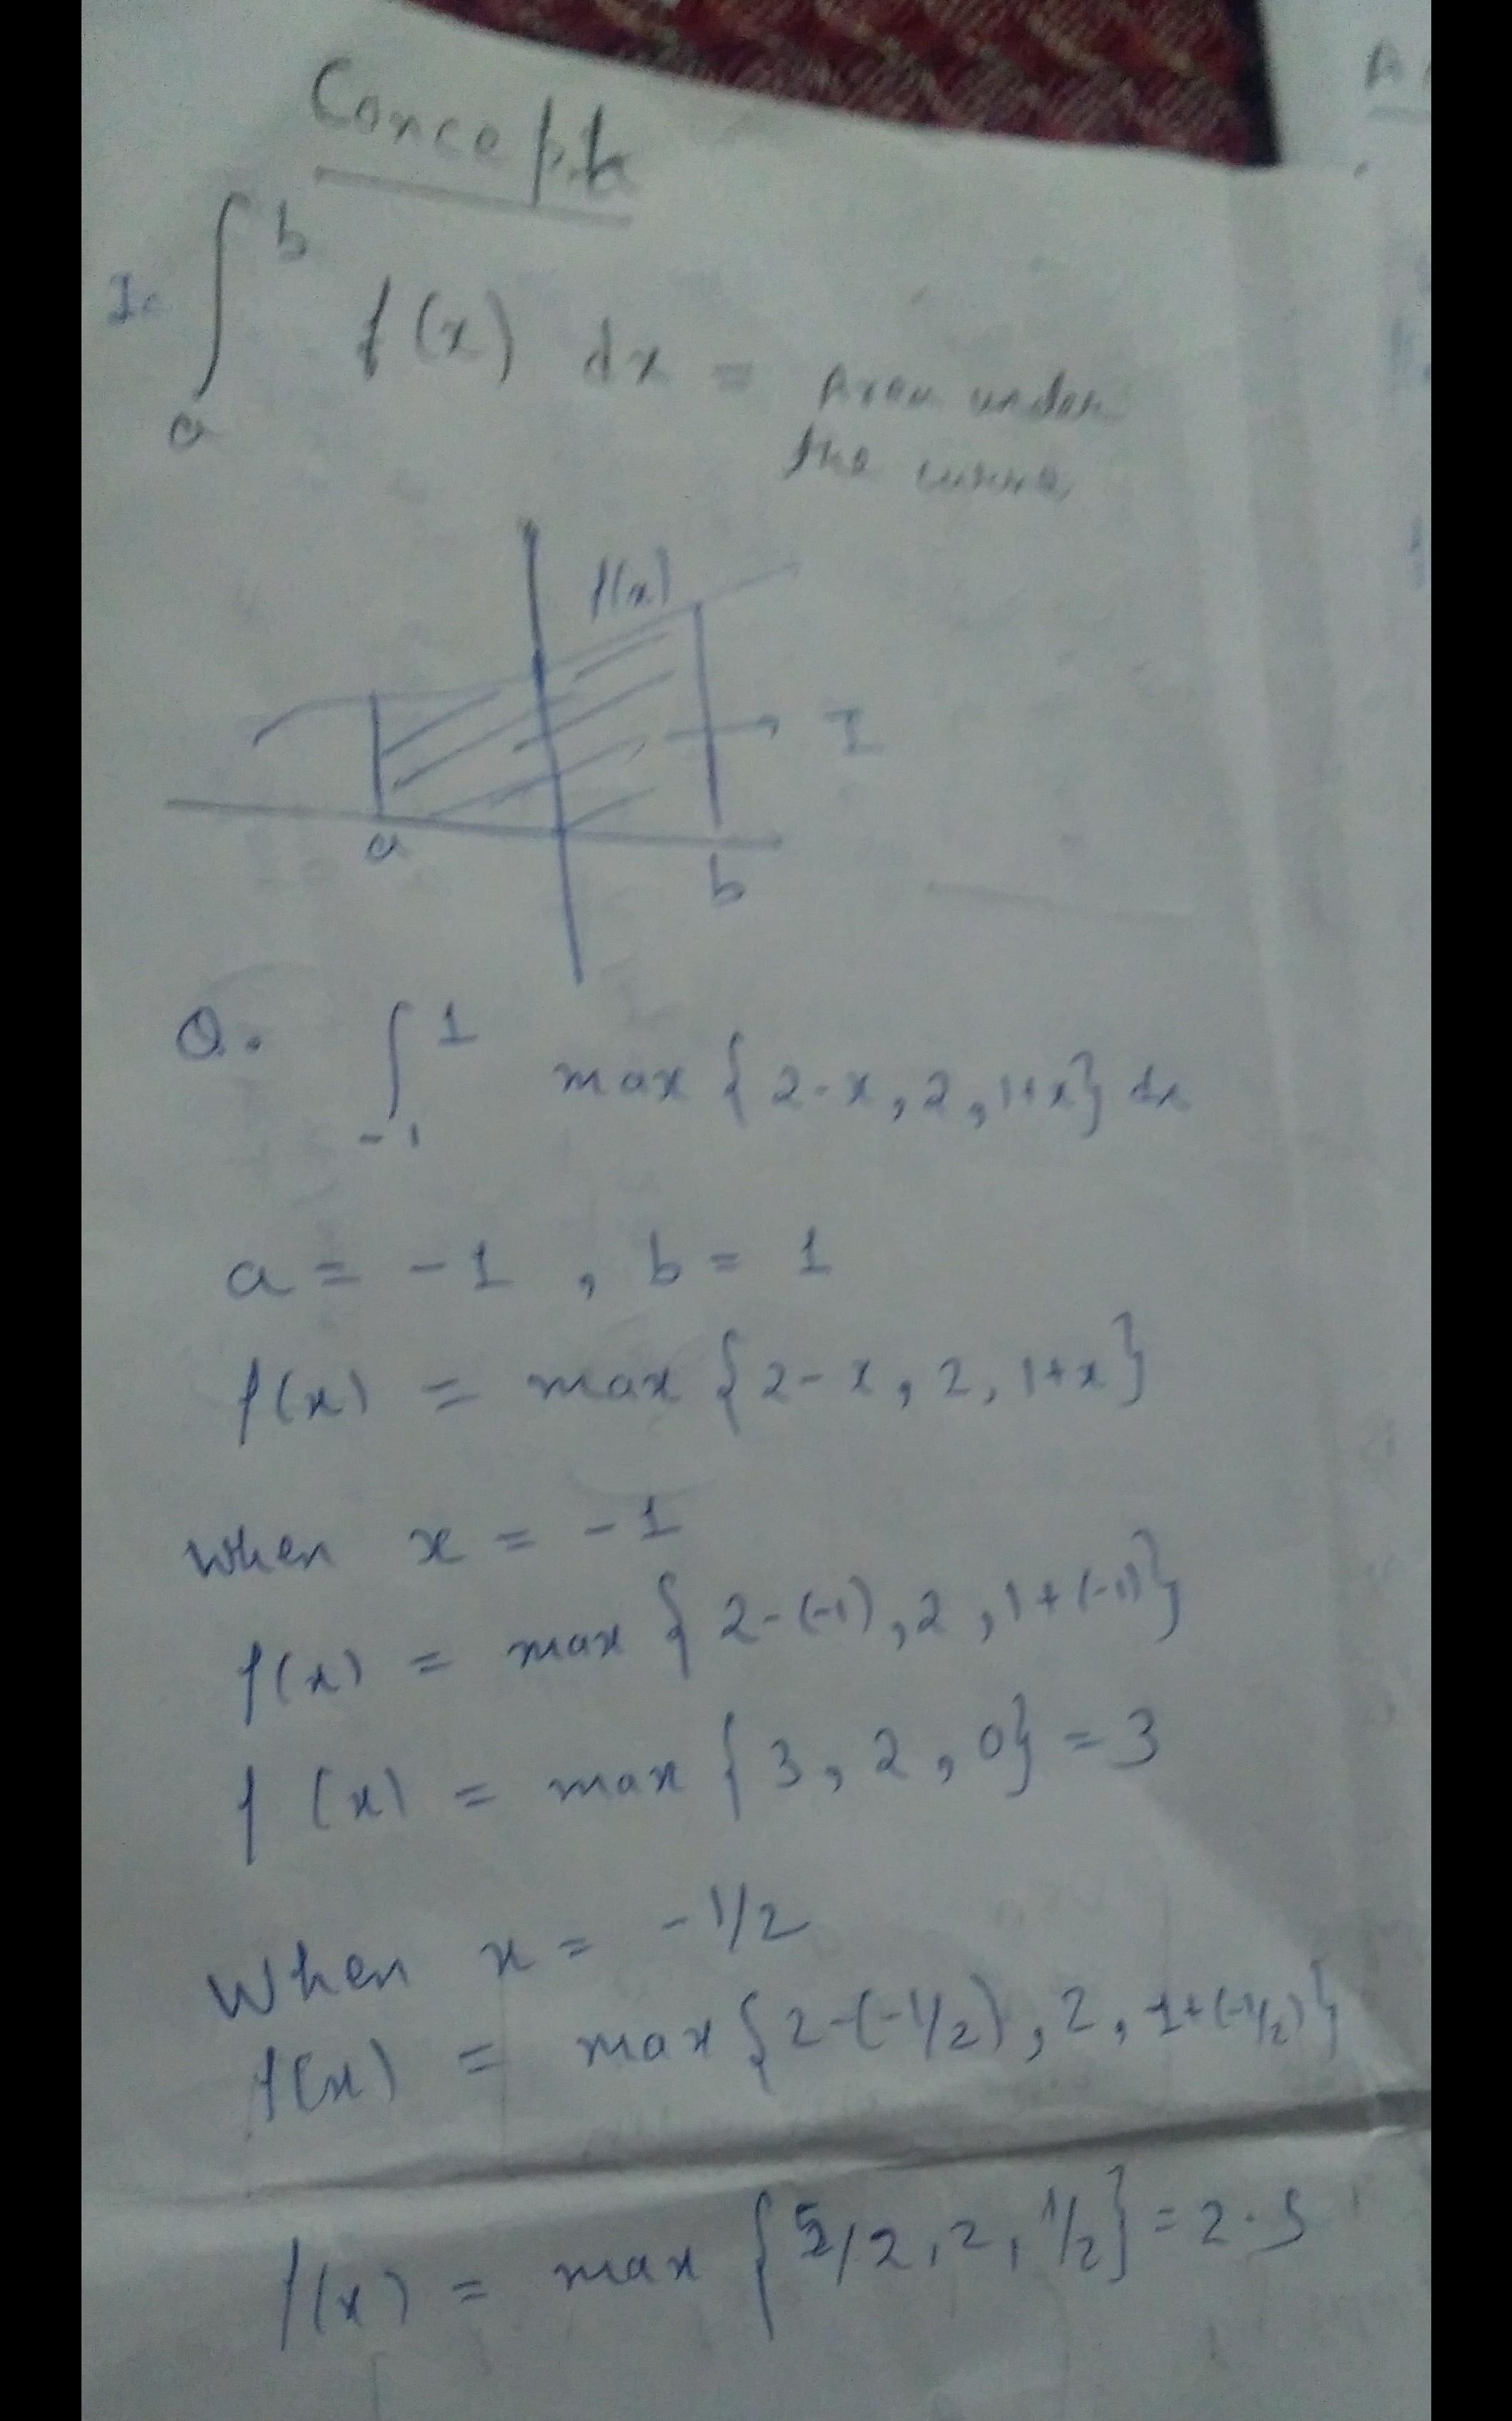 Concept
I = ∫_a^b f(x) dx = Area under
the curve
f(x)
I
a
b
Q. ∫_-1^1 max {2-x, 2, 1+x} dx
a = -1, b = 1
f(x) = max {2-x, 2, 1+x}
When x = -1
f(x) = max {2-(-1), 2, 1+(-1)}
f(x) = max {3, 2, 0} = 3
When x = -1/2
f(x) = max {2-(-1/2), 2, 1+(-1/2)}
f(x) = max {5/2, 2, 1/2} = 2.5